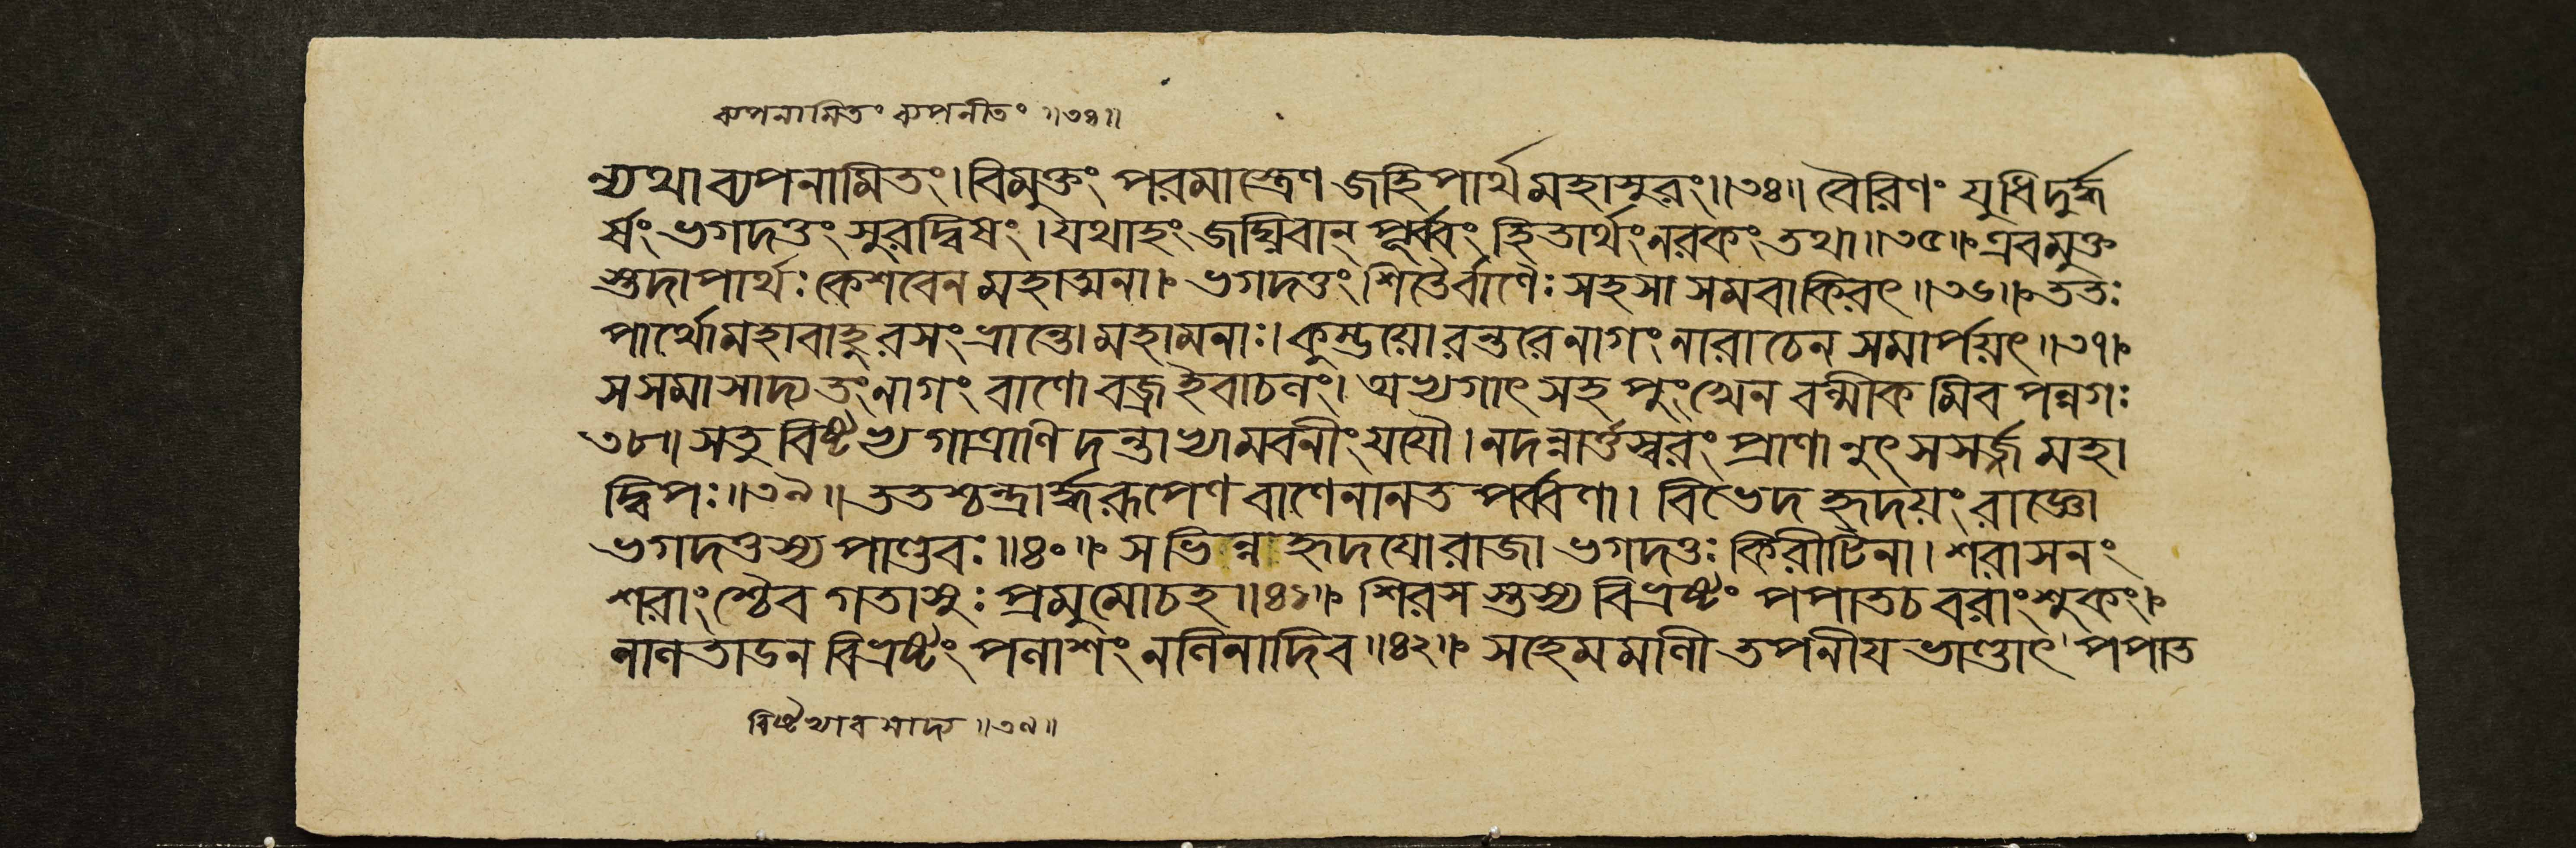 ব্যপনামিতং ব্যপনীতং ॥৩৪॥
ন্যথা ব্যপনামিতং। বিমুক্তং পরমাস্ত্রেণ জহি পার্থ মহাসুরং॥৩৪॥ বৈরিণং যুধি দুর্দ্ধ
র্ষং ভগদত্তং সুরদ্বিষং। যথাহং জঘ্নিবান্ পূর্ব্বং হিতার্থং নরকং তথা॥৩৫॥ এবমুক্ত
স্তদা পার্থঃ কেশবেন মহাত্মনা। ভগদত্তং শিতৈর্বাণৈঃ সহসা সমবাকিরৎ॥৩৬॥ ততঃ
পার্থো মহাবাহুরসংভ্রান্তো মহামনাঃ। কুম্ভয়োরন্তরে নাগং নারাচেন সমার্পয়ৎ॥৩৭।
স সমাসাদ্য তং নাগং বাণো বজ্র ইবাচলং। অভ্যগাৎ সহ পুংখেন বল্মীকমিব পন্নগঃ
৩৮॥ স তু বিষ্টভ্য গাত্রাণি দন্তাভ্যামবনীং যযৌ। নদন্নার্ত্তস্বরং প্রাণানুৎসসর্জ্জ মহা
দ্বিপঃ॥৩৯॥ ততশ্চন্দ্রার্দ্ধরূপেণ বাণেনানতপর্ব্বণা। বিভেদ হৃদয়ং রাজ্ঞো
ভগদত্তস্য পাণ্ডবঃ॥৪০॥ স ভিন্নহৃদযো রাজা ভগদত্তঃ কিরীটিনা। শরাসনং
শরাংশ্চৈব গতাসুঃ প্রমুমোচ হ॥৪১॥ শিরসস্তস্য বিভ্রষ্টং পপাত চ বরাংশুকং।
নালতাডনবিভ্রষ্টং পলাশং নলিনাদিব॥৪২॥ স হেমমালী তপনীযভাণ্ডাৎ পপাত
বিষ্টভ্যাবসাদ্য ॥৩৯॥